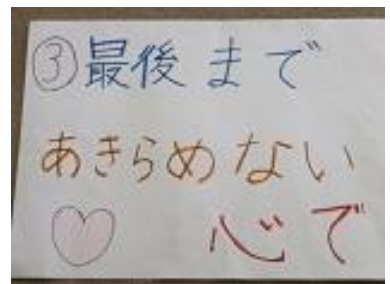 ③最後まで
あきらめない
心で